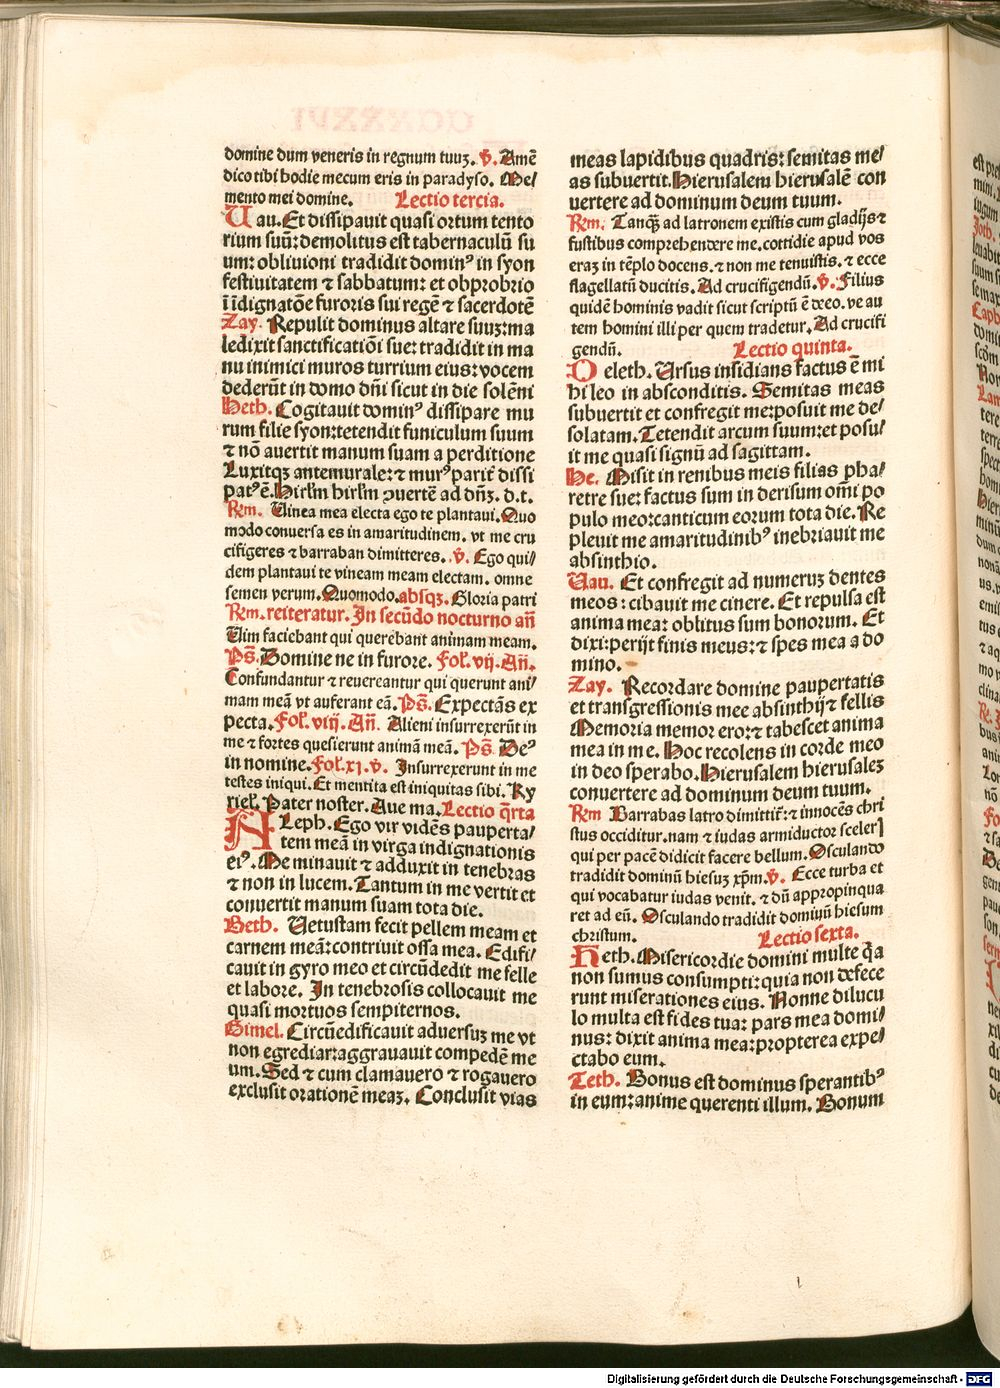 domine dum veneris in regnum tuuꝫ. ℣. Amē
dico tibi hodie mecum eris in paradyso. Me⸗
mento mei domine. Lectio tercia.
Uau. Et dissipauit quasi ortum tento
rium suū: demolitus est tabernaculū su
um: obliuioni tradidit dominꝰ in syon
festiuitatem ⁊ sabbatum: et obprobrio
⁊ ī idignatōe furoris sui regē ⁊ sacerdotē
Zay. Repulit dominus altare suuꝫ: ma
ledixit sanctificatiōi sue: tradidit in ma
nu inimici muros turrium eius: vocem
dederūt in domo dn̄i sicut in die solēni
Heth. Cogitauit dominꝰ dissipare mu
rum filie syon: tetendit funiculum suum
⁊ nō auertit manum suam a perditione
Luxitqꝫ antemurale: ⁊ murꝰ parit̄ dissi
patꝰ ē. Hirl̄m hirl̄m ꝯuertē ad dn̄ꝫ. d. t.
Rm̄. Uinea mea electa ego te plantaui. Quo
modo conuersa es in amaritudinem. vt me cru
cifigeres ⁊ barraban dimitteres. ℣. Ego qui⸗
dem plantaui te vineam meam electam. omne
semen verum. Quomodo. absqꝫ. Gloria patri
Rm̄. reiteratur. In secūdo nocturno an̄
Uim faciebant qui querebant animam meam.
Ps̄. Domine ne in furore. Fol. vij. An̄.
Confundantur ⁊ reuereantur qui querunt ani⸗
mam meā vt auferant eā. Ps̄. Expectās ex
pecta. Fol. viij. An̄. Alieni insurrexerūt in
me ⁊ fortes quesierunt animā meā. Ps̄. Deꝰ
in nomine. Fol. xj. ℣. Insurrexerunt in me
testes iniqui. Et mentita est iniquitas sibi. Ky
riel. Pater noster. Aue ma. Lectio q̄rta
ALeph. Ego vir vidēs pauperta⸗
tem meā in virga indignationis
eiꝰ. Me minauit ⁊ adduxit in tenebras
⁊ non in lucem. Tantum in me vertit et
conuertit manum suam tota die.
Beth. Uetustam fecit pellem meam et
carnem meā: contriuit ossa mea. Edifi⸗
cauit in gyro meo et circūdedit me felle
et labore. In tenebrosis collocauit me
quasi mortuos sempiternos.
Gimel. Circūedificauit aduersuꝫ me vt
non egrediar: aggrauauit compedē me
um. Sed ⁊ cum clamauero ⁊ rogauero
exclusit orationē meaꝫ. Conclusit vias
meas lapidibus quadris: semitas me⸗
as subuertit. Hierusalem hierusalē con
uertere ad dominum deum tuum.
Rm̄. Tanqꝫ ad latronem existis cum gladijs ⁊
fustibus comprehendere me. cottidie apud vos
eraꝫ in tēplo docens. ⁊ non me tenuistis. ⁊ ecce
flagellatū ducitis. Ad crucifigendū. ℣. Filius
quidē hominis vadit sicut scriptū ē deeo. ve au
tem homini illi per quem tradetur. Ad crucifi
gendū. Lectio quinta.
Deleth. Ursus insidians factus ē mi
hi leo in absconditis. Semitas meas
subuertit et confregit me: posuit me de⸗
solatam. Tetendit arcum suum: et posu⸗
it me quasi signū ad sagittam.
He. Misit in renibus meis filias pha⸗
retre sue: factus sum in derisum om̄i po
pulo meo: canticum eorum tota die. Re
pleuit me amaritudinibꝰ inebriauit me
absinthio.
Uau. Et confregit ad numeruꝫ dentes
meos: cibauit me cinere. Et repulsa est
anima mea: oblitus sum bonorum. Et
dixi: perijt finis meus: ⁊ spes mea a do
mino.
Zay. Recordare domine paupertatis
et transgressionis mee absinthij ⁊ fellis
Memoria memor ero: ⁊ tabescet anima
mea in me. Hoc recolens in corde meo
in deo sperabo. Hierusalem hierusaleꝫ
conuertere ad dominum deum tuum.
Rm̄ Barrabas latro dimittit̄: ⁊ innocēs chri
stus occiditur. nam ⁊ iudas armiductor sceleꝝ
qui per pacē didicit facere bellum. Osculando
tradidit dominū hiesuꝫ xp̄m. ℣. Ecce turba et
qui vocabatur iudas venit. ⁊ dū appropinqua
ret ad eū. Osculando tradidit dominū hiesum
christum. Lectio sexta.
Heth. Misericordie domini multe q̄a
non sumus consumpti: quia non defece
runt miserationes eius. Nonne dilucu
lo multa est fides tua: pars mea domi⸗
nus: dixit anima mea: propterea expe⸗
ctabo eum.
Teth. Bonus est dominus sperantibꝰ
in eum: anime querenti illum. Bonum
Digitalisierung gefördert durch die Deutsche Forschungsgemeinschaft - DFG